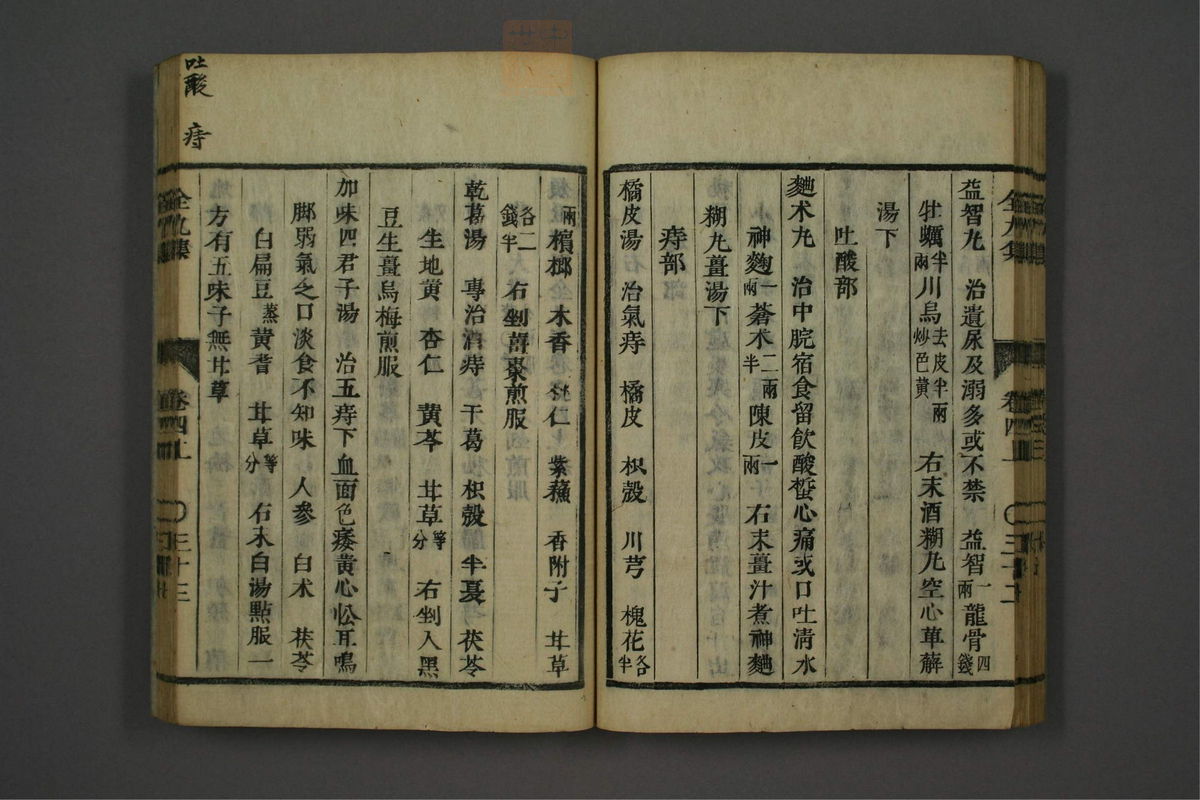 益智丸 治遺尿及溺多或不禁 益智一兩龍骨四錢
牡蠣半兩川烏去皮半兩炒色黃 右末酒糊丸空心萆薢
湯下
吐酸部
麯朮丸 治中脘宿食留飲酸蜇心痛或口吐清水
神麴一兩蒼朮二兩半陳皮一兩 右末薑汁煮神麯
糊丸薑湯下
痔部
橘皮湯 治氣痔 橘皮 枳殼 川芎 槐花各半
兩檳榔 木香 桃仁 紫蘇 香附子 甘草
各二錢半 右剉薑棗煎服
乾葛湯 專治酒痔 干葛 枳殼 半夏 茯苓
生地黃 杏仁 黃芩 甘草等分 右剉入黑
豆生薑烏梅煎服
加味四君子湯 治五痔下血面色痿黃心忪耳鳴
脚弱氣乏口淡食不知味 人參 白朮 茯苓
白扁豆蒸 黃耆 甘草等分 右末白湯點服一
方有五味子無甘草
全九集 卷四上 〇三十三
吐酸 痔